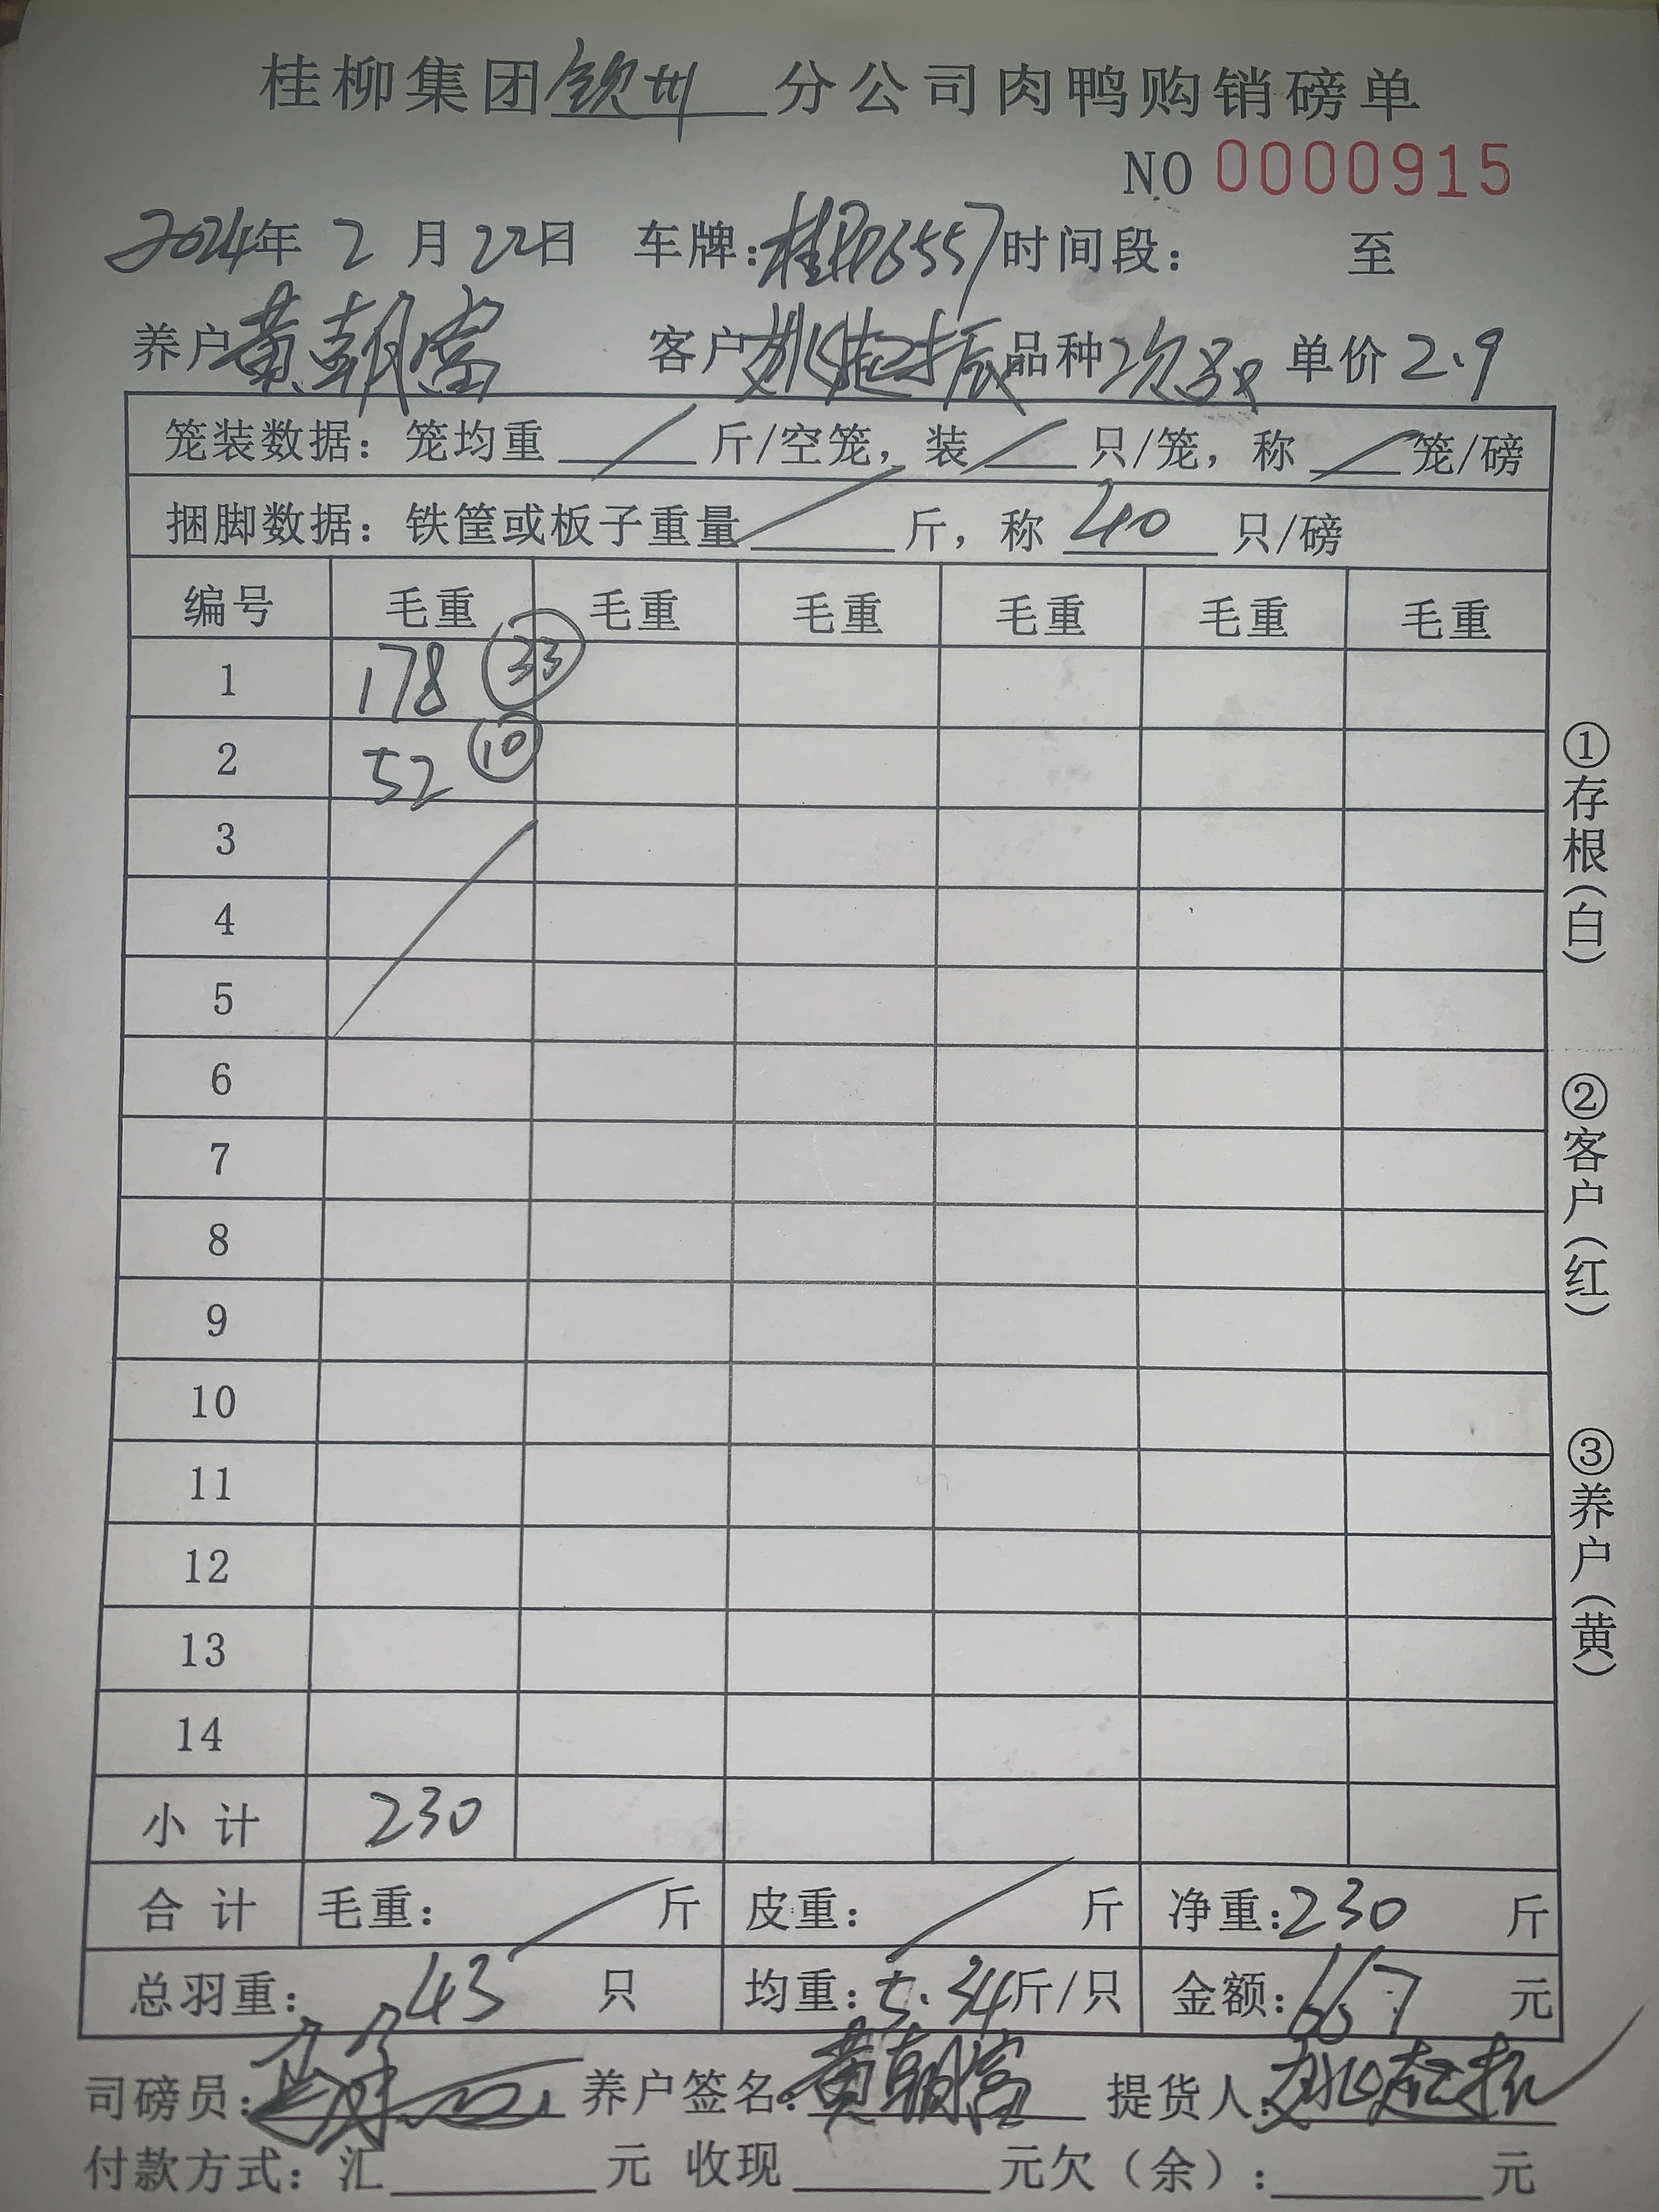 桂柳集团钦州分公司肉鸭购销磅单
NO 0000915
2024年 2 月 22日 车牌: 时间段: 至
养户黄朝富 客户姚起振 品种次 单价2.9
笼装数据: 笼均重 / 斤/空笼, 装 / 只/笼, 称 / 笼/磅
捆脚数据: 铁筐或板子重量 / 斤, 称 40 只/磅
编号 毛重 毛重 毛重 毛重 毛重 毛重
1 178 ㉝
2 52 ⑩
3
4
5
6
7
8
9
10
11
12
13
14
小计 230
合计 毛重: / 斤 皮重: / 斤 净重:230 斤
总羽重: 43 只 均重:5.34斤/只 金额:667 元
司磅员: 养户签名:黄朝富 提货人:姚起振
付款方式: 汇 元 收现 元欠(余): 元
①存根(白)
②客户(红)
③养户(黄)